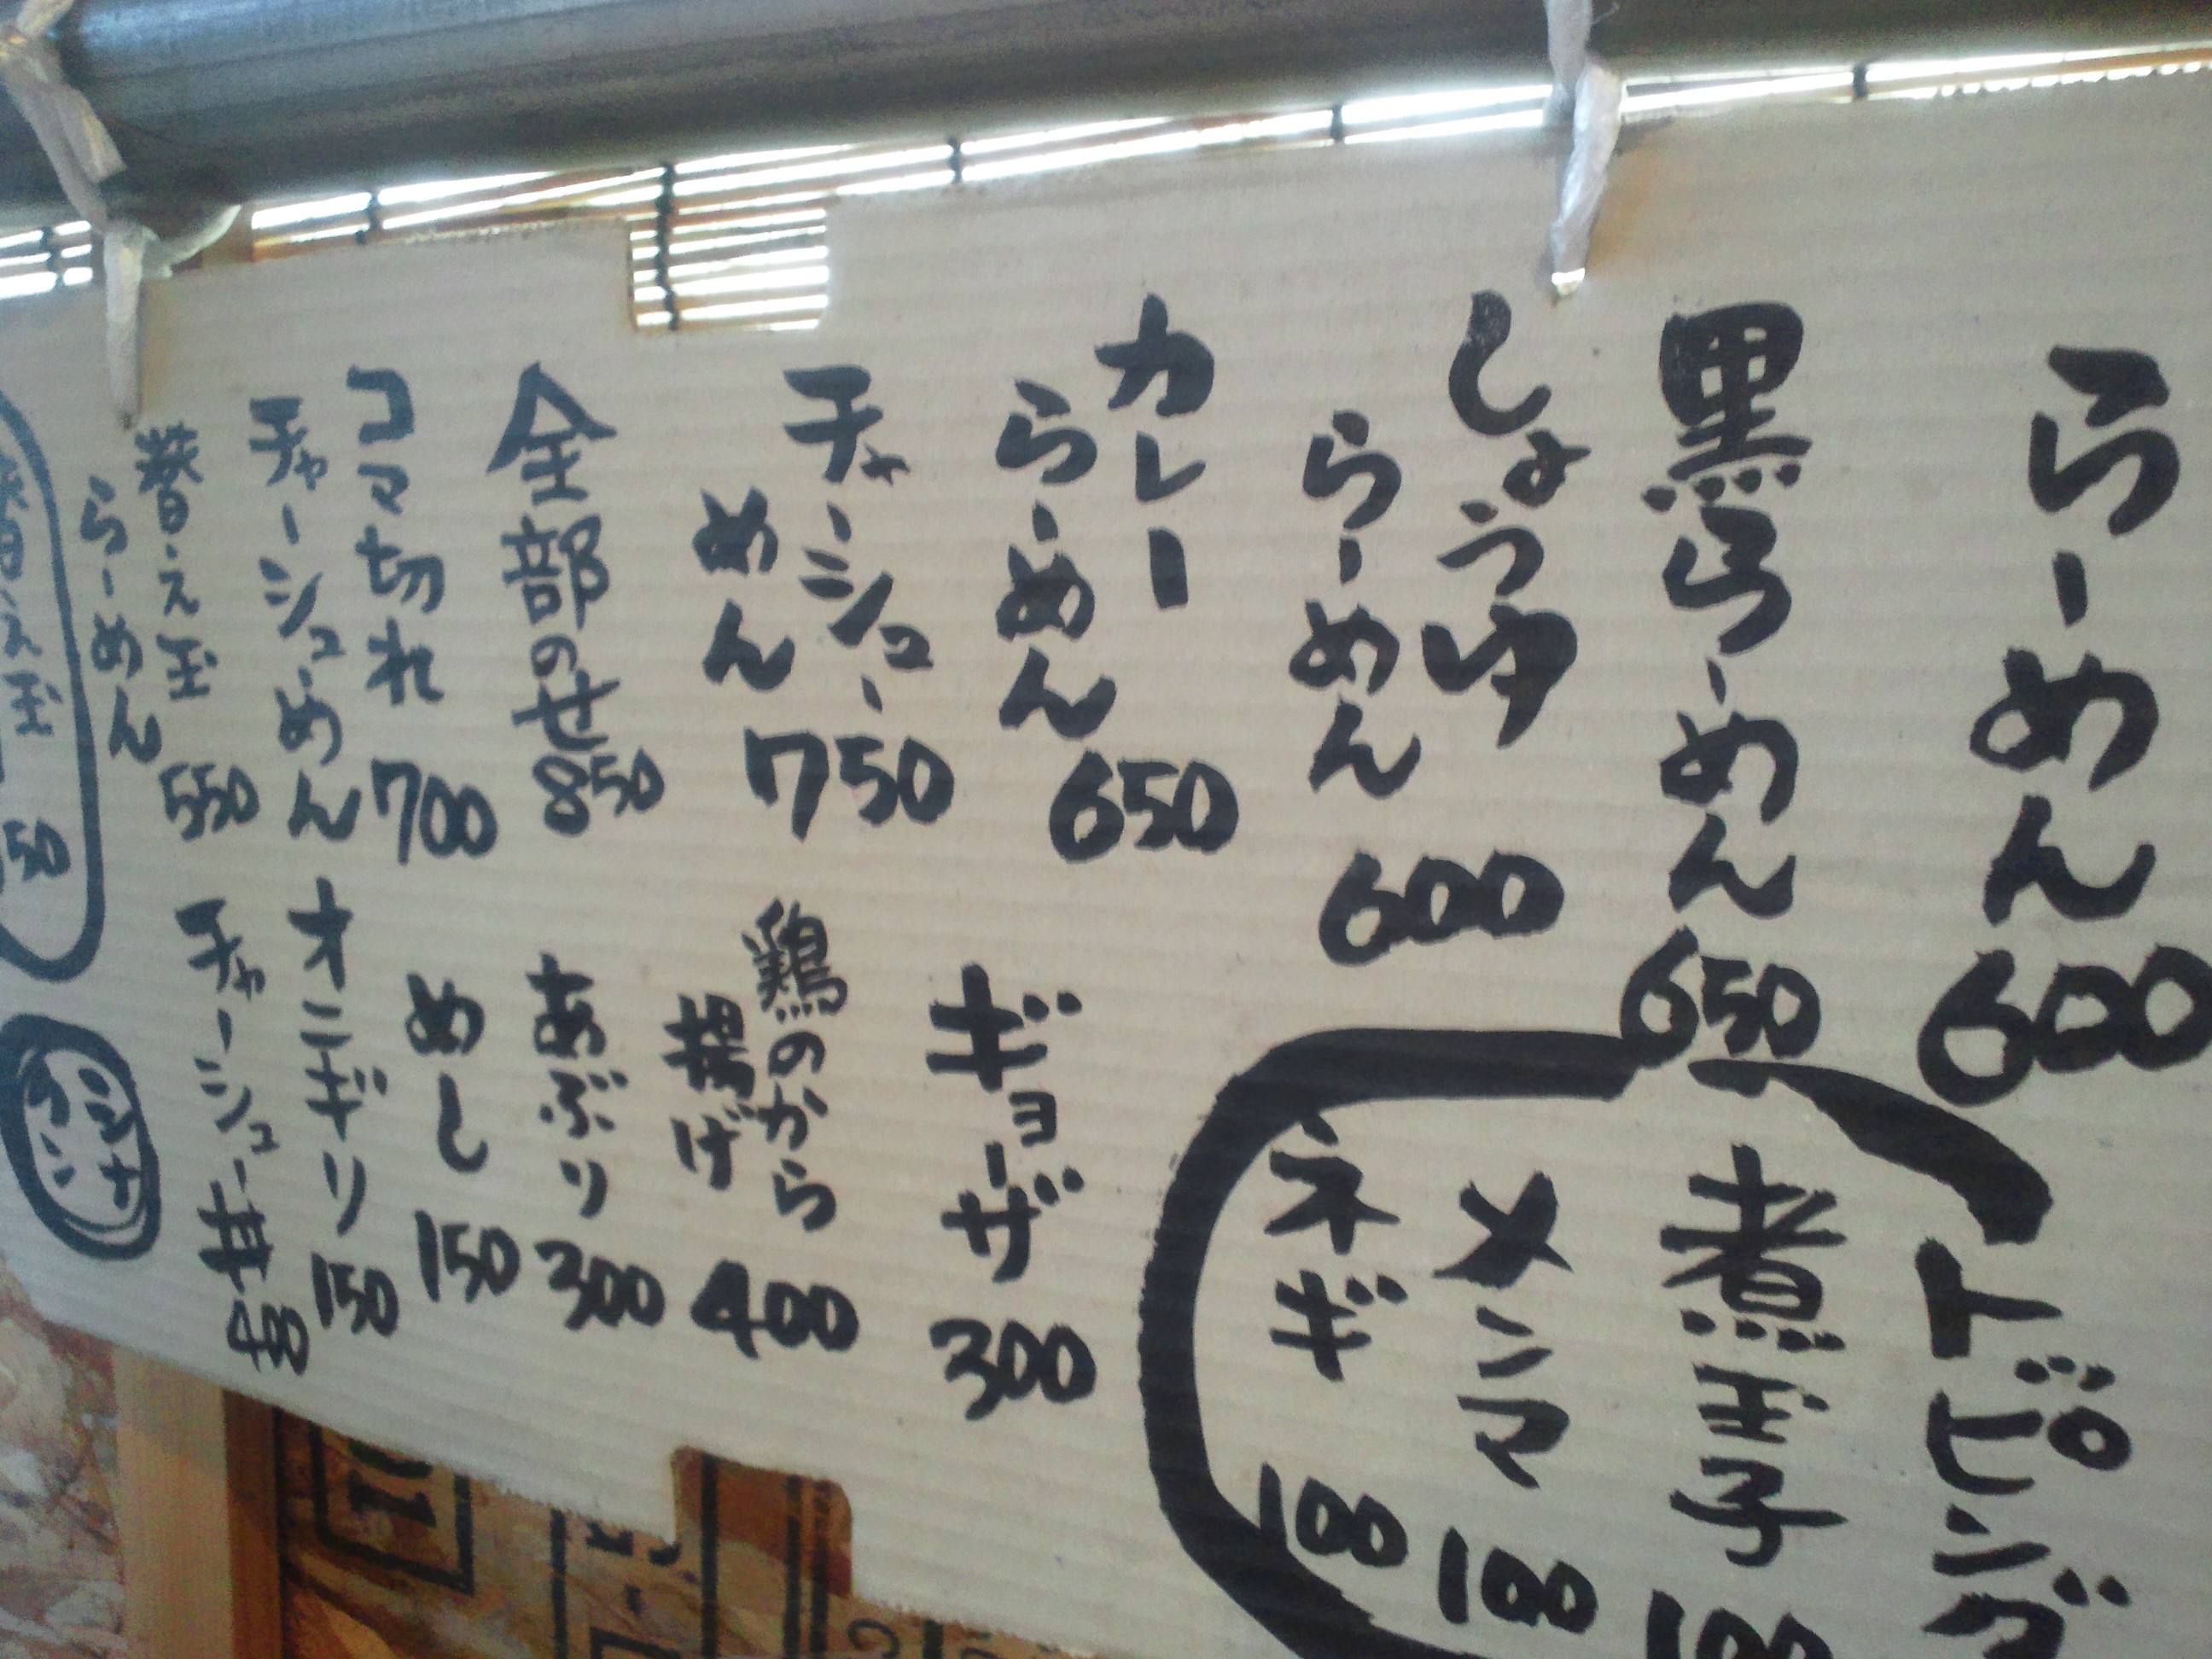 らーめん 600
黒らーめん 650
しょうゆ
らーめん 600
カレー
らーめん 650
チャーシュー
めん 750
全部のせ 850
コマ切れ
チャーシューめん 700
替え玉
らーめん 550
替え玉
トッピング
煮玉子 100
メンマ 100
ネギ 100
ギョーザ 300
鶏のから
揚げ 400
あぶり 300
めし 150
オニギリ 150
チャーシュー丼 400